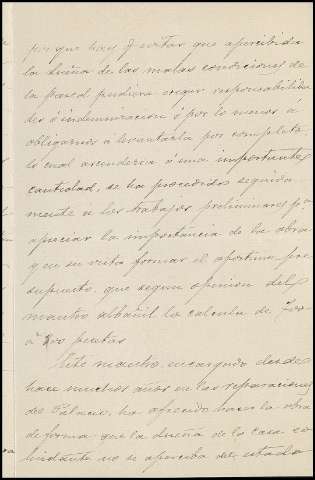 porque hay q evitar que apercibida
la dueña de las malas condiciones de
la pared pudiera exigir responsabilida
des ó indemnizacion ó por lo menos á
obligarnos á levantarla por completo
lo cual ascendería á una importante
cantidad, se ha procedido seguida
mente á los trabajos preliminares pª
apreciar la importancia de la obra
y en su vista formar el oportuno pre
supuesto, que segun opinion del
maestro albañil lo calcula de 700
á 800 pesetas
Este maestro, encargado desde
hace muchos años en las reparaciones
del Palacio, ha ofrecido hacer la obra
de forma que la dueña de la casa co
lindante no se aperciba del estado